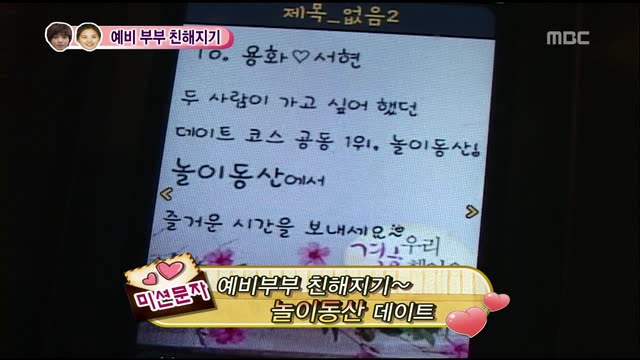 예비 부부 친해지기
MBC
제목_없음2
10. 용화♡서현
두 사람이 가고 싶어 했던
데이트 코스 공동 1위, 놀이동산!
놀이동산에서
즐거운 시간을 보내세요
우리
미션문자
예비부부 친해지기~
놀이동산 데이트